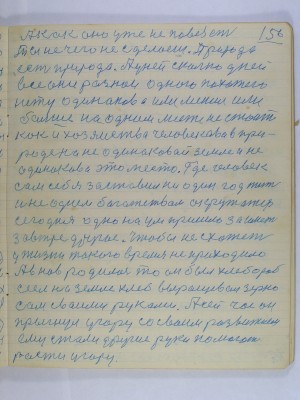 А как оно уже не повезет 156
Тся нечего не сделаеш. Природа
ест природа. А у ней сколко дней
все они разнаи одного похожего
нету одинакова или менш или
болше на одном месте не стоят
как и хозяства человекова в при-
роде на не одинаковай земле и не
одинакова это место. Где человек
сам себя заставил ни один год жит
и не одним богатством окружатся
сегодня одно на ум пришло загамот
завтре другое. Чтобы не схожест
у жизни такого время не приходило
Ивнов родился то он был хлебороб
сеел на земле хлеб выращевал зерно
сам своими руками. А сей час он
прыгнул у гору со своим развитием
ему стали другие руки помогат
рости у гору.